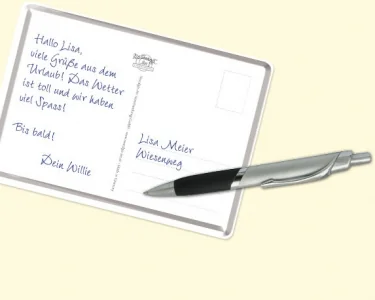 Hallo Lisa,
viele Grüße aus dem
Urlaub! Das Wetter
ist toll und wir haben
viel Spass!
Bis bald!
Dein Willie
Lisa Meier
Wiesenweg